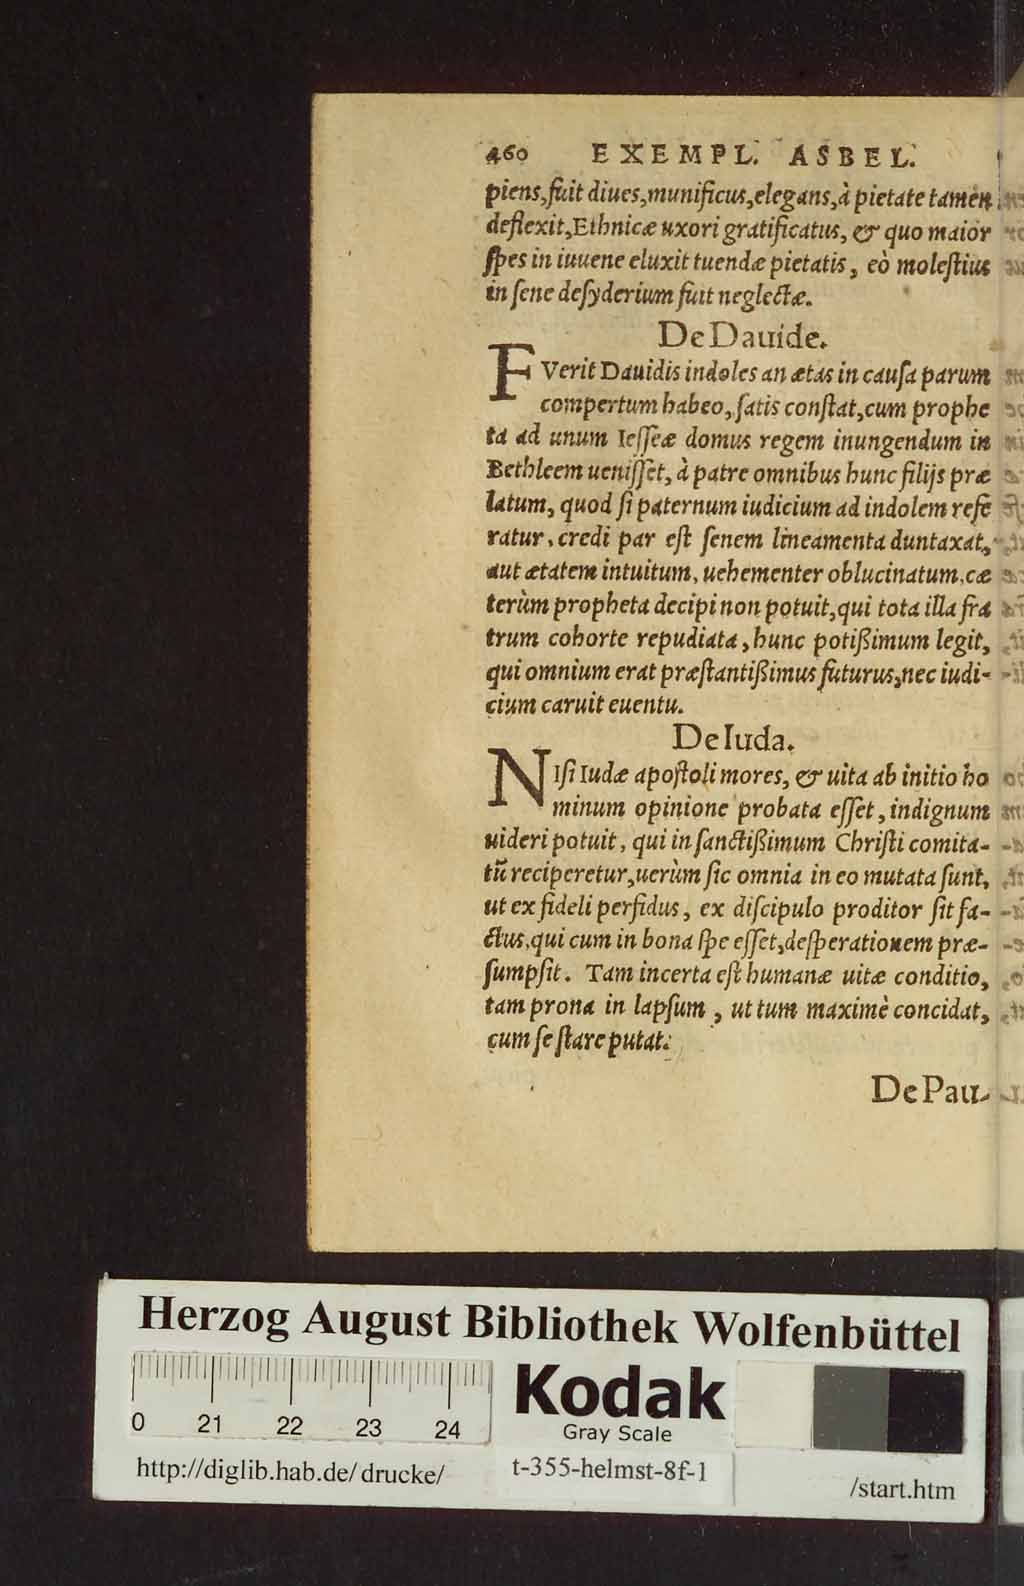 460 EXEMPL. ASBEL.
piens,fuit diues,munificus,elegans,à pietate tamen
deflexit,Ethnicæ uxori gratificatus, & quo maior
ſpes in iuuene eluxit tuendæ pietatis, eò moleſtius
in ſene deſyderium fuit neglectæ.
De Dauide.
FVerit Dauidis indoles an ætas in cauſa parum
compertum habeo, ſatis conſtat,cum prophe
ta ad unum Ieſſeæ domus regem inungendum in
Bethleem ueniſſet, à patre omnibus hunc filijs præ
latum, quod ſi paternum iudicium ad indolem refe
ratur, credi par eſt ſenem lineamenta duntaxat,
aut ætatem intuitum, uehementer oblucinatum,cæ
terùm propheta decipi non potuit,qui tota illa fra
trum cohorte repudiata, hunc potißimum legit,
qui omnium erat præſtantißimus futurus,nec iudi-
cium caruit euentu.
De Iuda.
NIſi Iudæ apoſtoli mores, & uita ab initio ho
minum opinione probata eſſet, indignum
uideri potuit, qui in ſanctißimum Chriſti comita-
tū reciperetur,uerùm ſic omnia in eo mutata ſunt,
ut ex fideli perfidus, ex diſcipulo proditor ſit fa-
ctus,qui cum in bona ſpe eſſet,deſperationem præ-
ſumpſit. Tam incerta eſt humanæ uitæ conditio,
tam prona in lapſum, ut tum maximè concidat,
cum ſe ſtare putat.
De Pau-
Herzog August Bibliothek Wolfenbüttel
0 21 22 23 24
Kodak
Gray Scale
http://diglib.hab.de/drucke/
t-355-helmst-8f-1
/start.htm